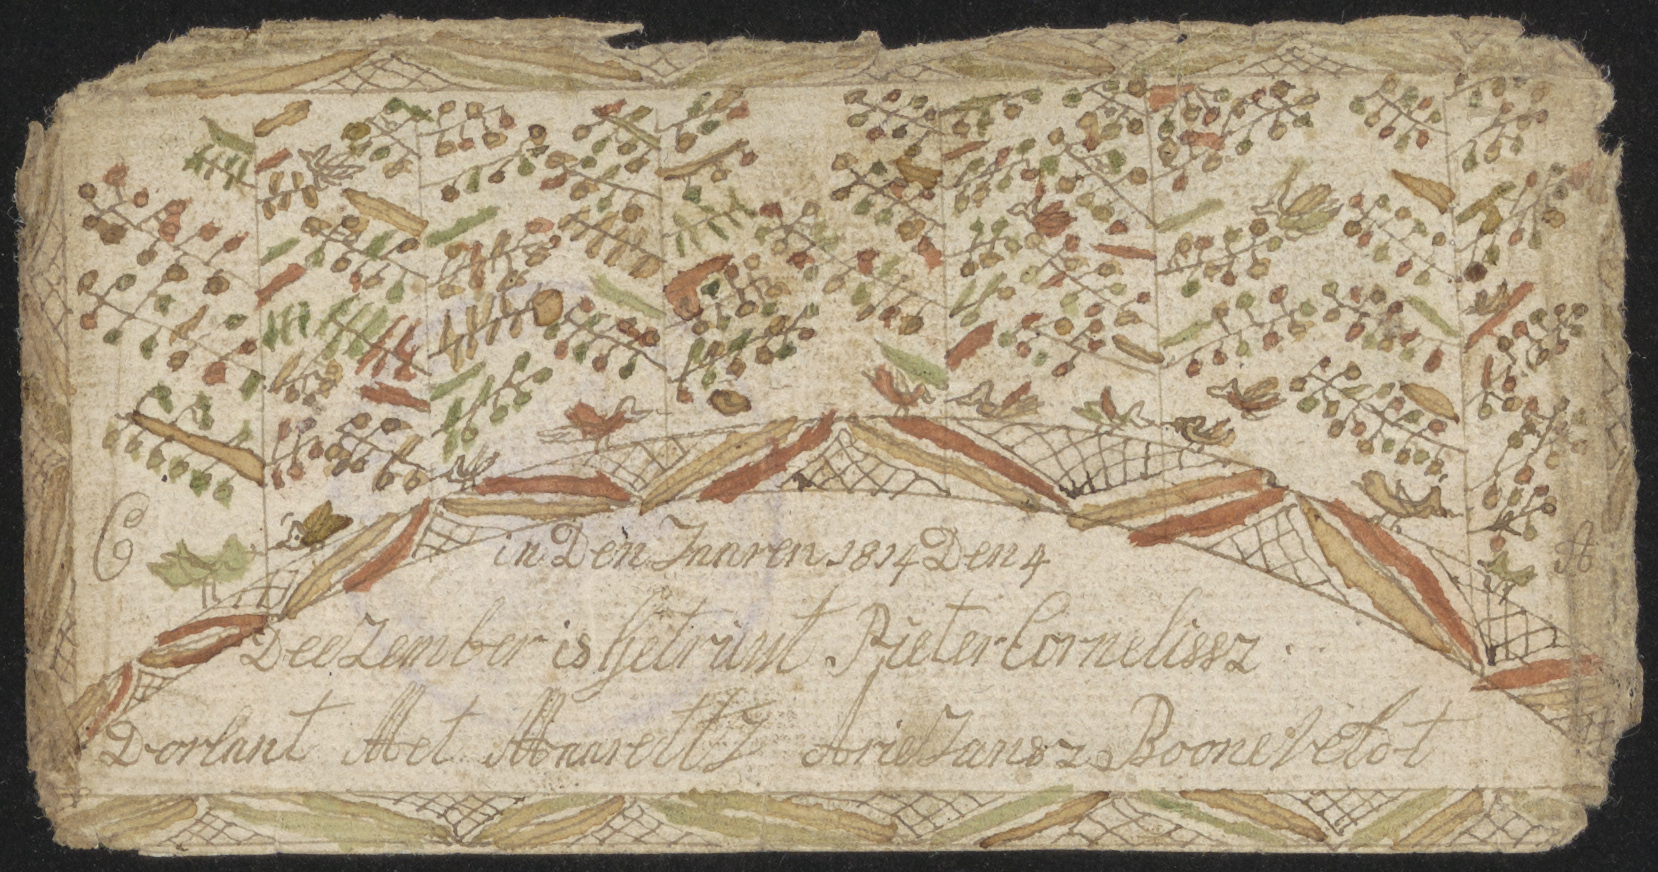 C
A
in Den Jaaren 1814 Den 4
Deezember is Getrint Pieter Cornelissz
Dorlant Met Maaretty ArieJansz Boonevelot